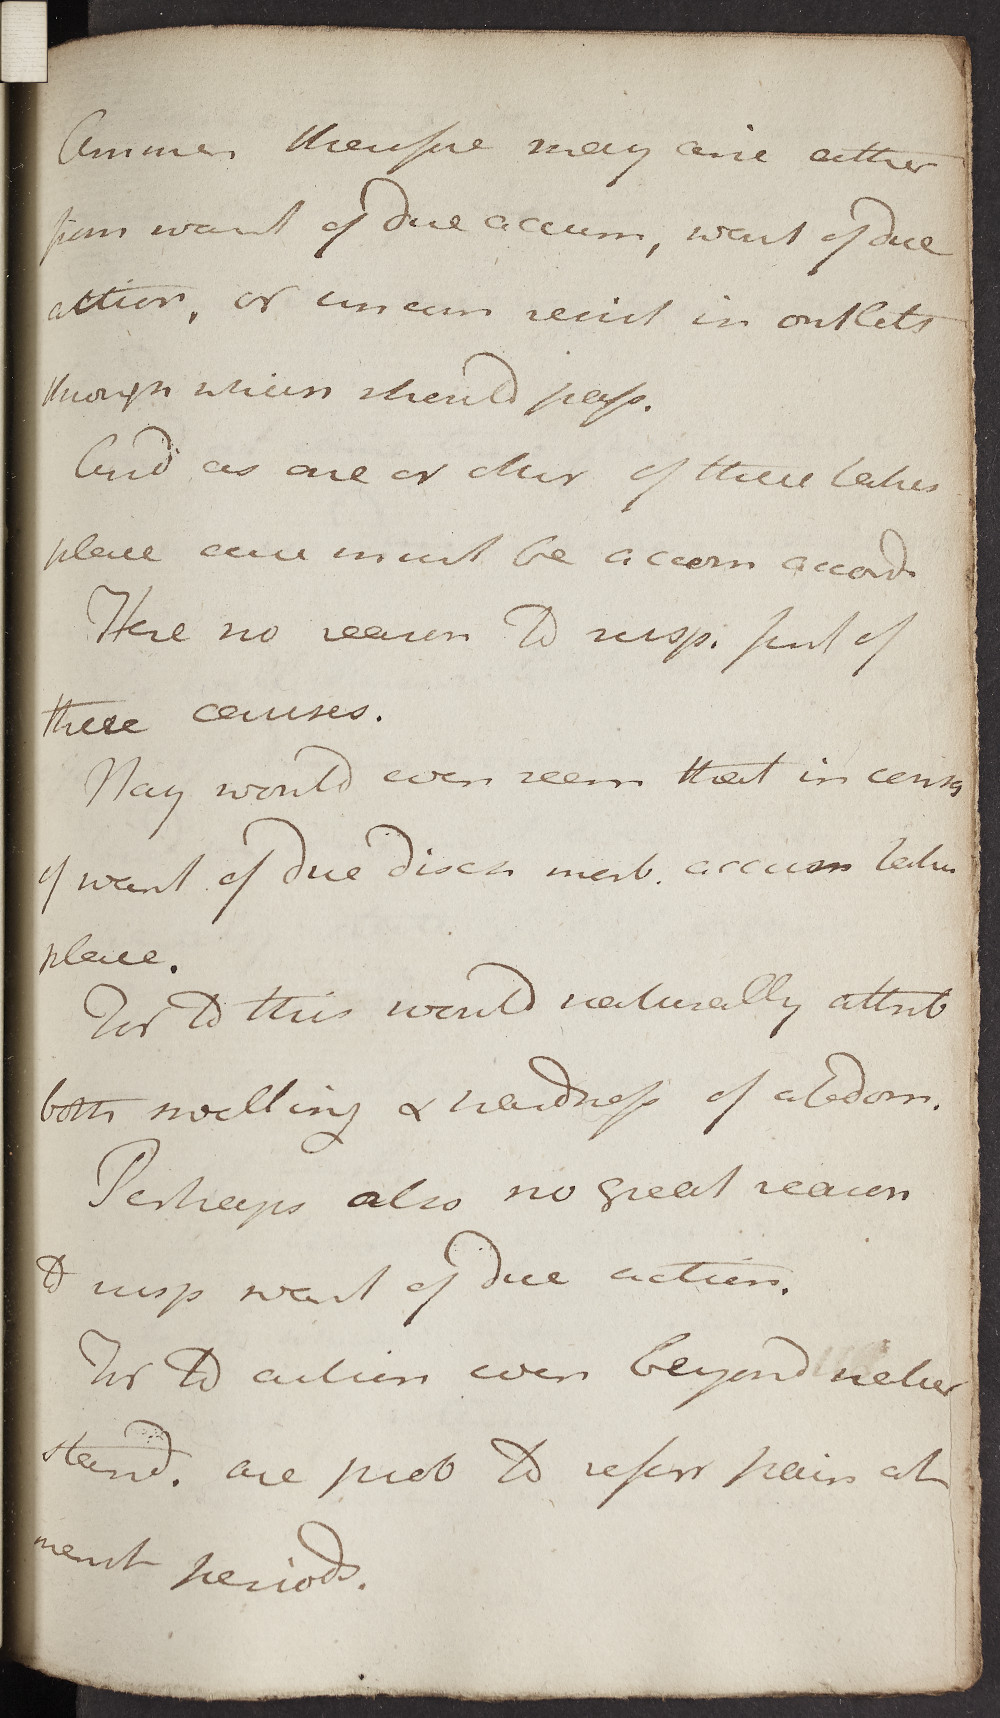 Ammen therefore may arise either
from want of due accum, want of due
action, or uncom resist in outlets
through which should pass.
And as one or other of these takes
place cure must be accom accord
Here no reason to susp. first of
these causes.
Nay would even seem that in conseq
of want of due disch morb. accum takes
place.
For to this would naturally attrib
both swelling & hardness of abdom.
Perhaps also no great reason
to susp want of due action.
For to action even beyond natur
stand. are prob to refer pain at
menst periods.